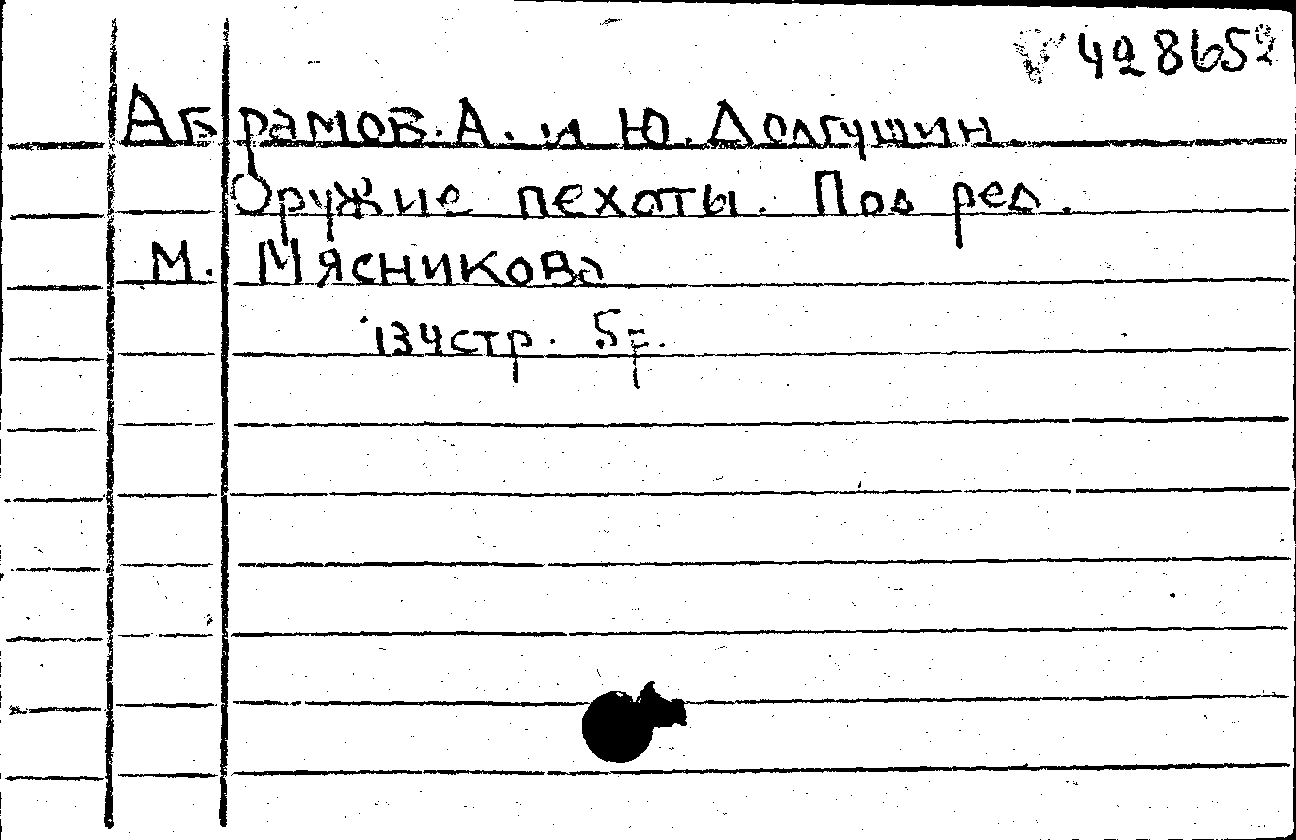 V 428652
Абрамов. А. и Ю. Долгушин.
Оружие пехоты. Под ред.
М. Мясникова
134 стр. 5 р.